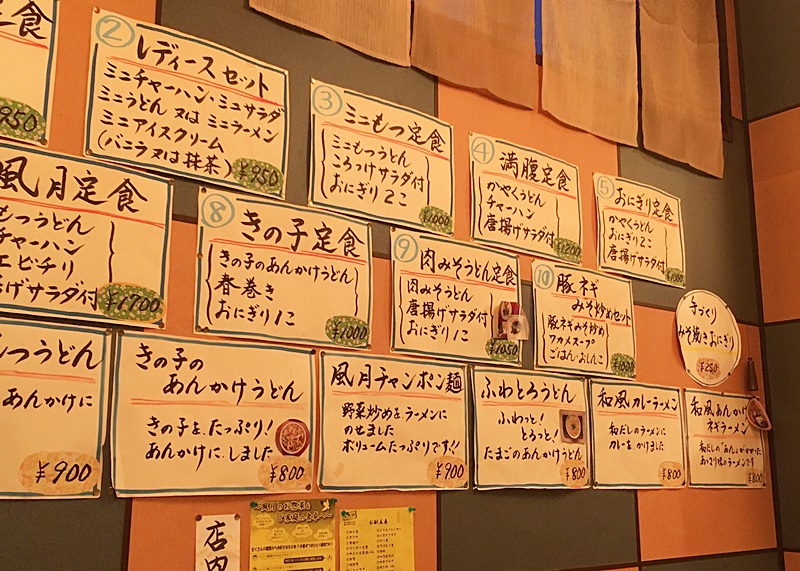 定食
950
② レディースセット
ミニチャーハン・ミニサラダ
ミニうどん 又は ミニラーメン
ミニアイスクリーム
(バニラ又は抹茶)
¥950
③ ミニもつ定食
ミニもつうどん
ころっけサラダ付
おにぎり2こ
¥1000
④ 満腹定食
かやくうどん
チャーハン
唐揚げサラダ付
⑤ おにぎり定食
かやくうどん
おにぎり2こ
唐揚げサラダ付
風月定食
もつうどん
チャーハン
エビチリ
げサラダ付
¥1700
⑧ きの子定食
きの子のあんかけうどん
春巻き
おにぎり1こ
¥1000
⑨ 肉みそうどん定食
肉みそうどん
唐揚げサラダ付
おにぎり1こ
¥1050
⑩ 豚ネギ
みそ炒めセット
豚ネギみそ炒め
ワカメスープ
ごはん・おしんこ
¥1000
手づくり
みそ焼きおにぎり
¥250
もつうどん
あんかけに
¥900
きの子の
あんかけうどん
きの子を、たっぷり!
あんかけに、しました
¥800
風月チャンポン麺
野菜炒めを、ラーメンに
のせました
ボリュームたっぷりです!!
¥900
ふわとろうどん
ふわっと!
とろっと!
たまごのあんかけうどん
¥800
和風カレーラーメン
和だしのラーメンに
カレーを、かけました
¥800
和風あんかけ
ネギラーメン
和だしの「あん」がかかった
あっさり味のラーメンです
¥800
店内